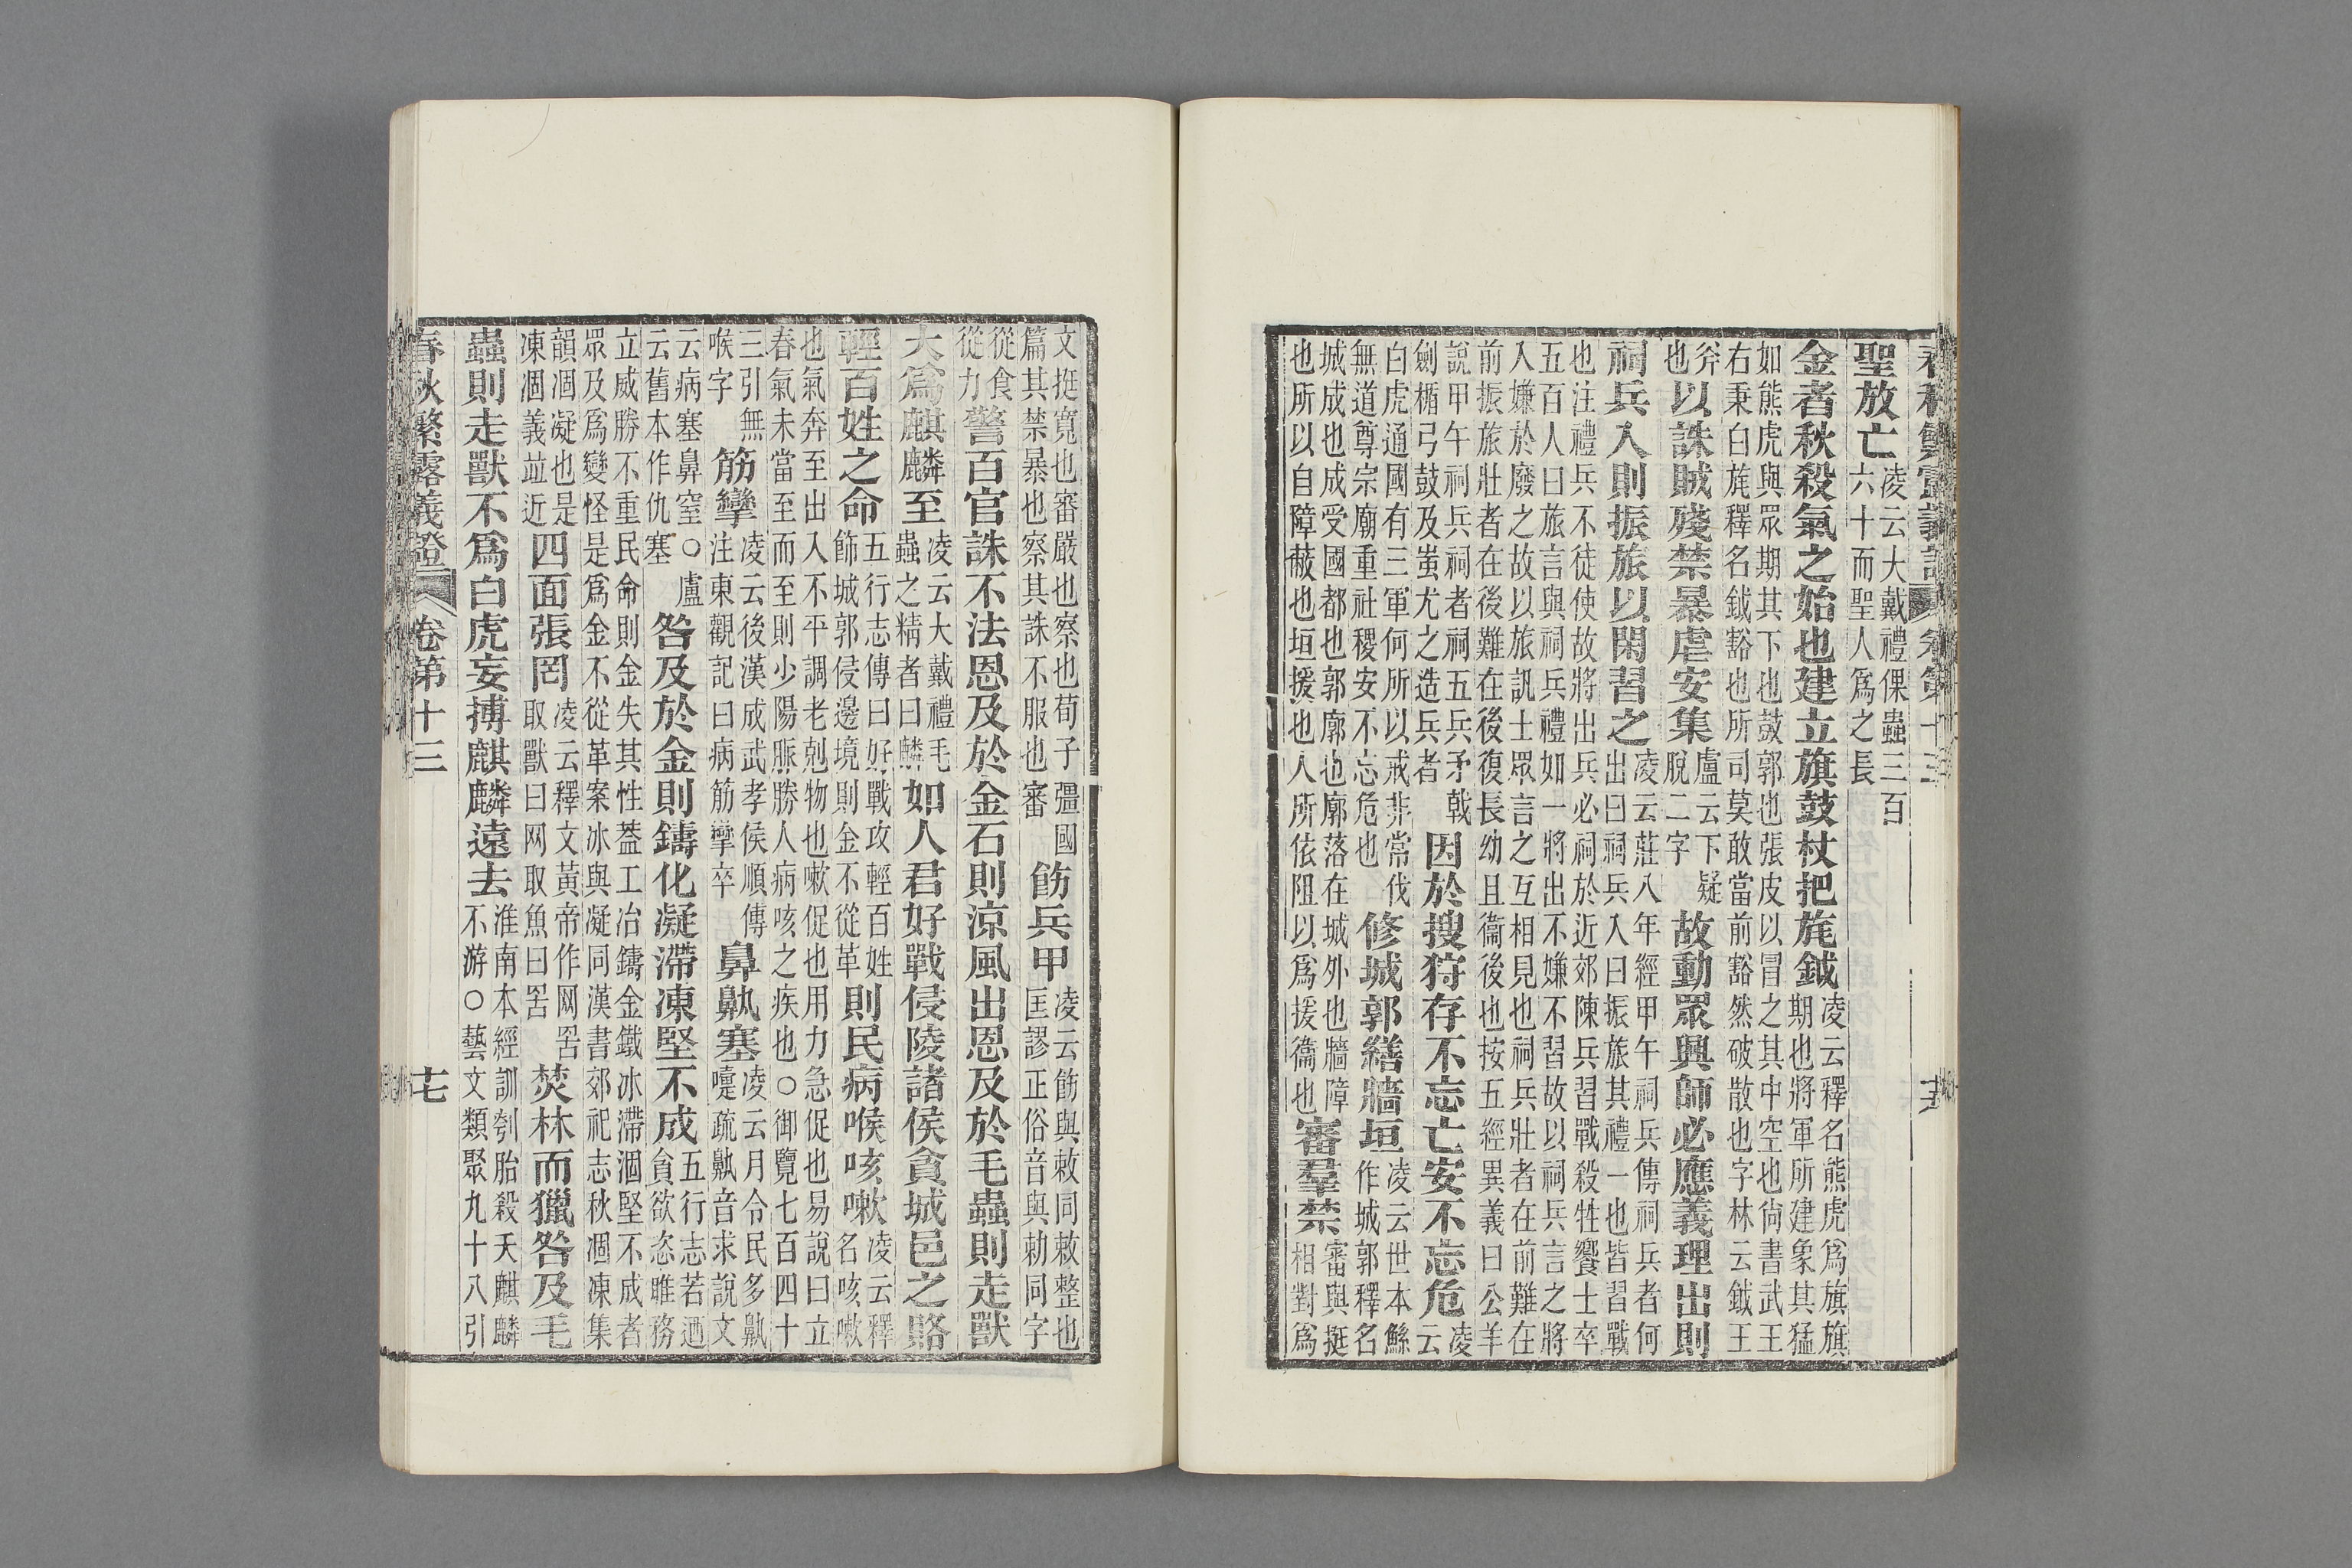 春秋繁露義證 卷第十三
聖放亡凌云大戴禮倮蟲三百六十而聖人爲之長
金者秋殺氣之始也建立旗鼓杖把旄鉞凌云釋名熊虎爲旗旗期也將軍所建象其猛
如熊虎與眾期其下也鼓郭也張皮以冒之其中空也尙書武王
右秉白旄釋名鉞豁也所司莫敢當前豁然破散也字林云鉞王
斧也以誅賊殘禁暴虐安集盧云下疑脫二字故動眾興師必應義理出則
祠兵入則振旅以閑習之凌云莊八年經甲午祠兵傳祠兵者何出曰祠兵入曰振旅其禮一也皆習戰
也注禮兵不徒使故將出兵必祠於近郊陳兵習戰殺牲饗士卒
五百人曰旅言與祠兵禮如一將出不嫌不習故以祠兵言之將
入嫌於廢之故以旅訊士眾言之互相見也祠兵壯者在前難在
前振旅壯者在後難在後復長幼且衞後也按五經異義曰公羊
說甲午祠兵祠者祠五兵矛戟劍楯弓鼓及蚩尤之造兵者因於搜狩存不忘亡安不忘危凌云
白虎通國有三軍何所以戒非常伐無道尊宗廟重社稷安不忘危也修城郭繕牆垣凌云世本鯀作城郭釋名
城成也成受國都也郭廓也廓落在城外也牆障也所以自障蔽也垣援也人所依阻以爲援衞也審羣禁審與挺相對爲
文挺寬也審嚴也察也荀子彊國篇其禁暴也察其誅不服也審飭兵甲凌云飭與敕同敕整也匡謬正俗音與勅同字
從食從力警百官誅不法恩及於金石則涼風出恩及於毛蟲則走獸
大爲麒麟至凌云大戴禮毛蟲之精者曰麟如人君好戰侵陵諸侯貪城邑之賂
輕百姓之命五行志傳曰好戰攻輕百姓飾城郭侵邊境則金不從革則民病喉咳嗽凌云釋名咳嗽
也氣奔至出入不平調老剋物也嗽促也用力急促也易說曰立
春氣未當至而至則少陽脈勝人病咳之疾也○御覽七百四十
三引無喉字筋攣凌云後漢成武孝侯順傳注東觀記曰病筋攣卒鼻鼽塞凌云月令民多鼽嚏疏鼽音求說文
云病塞鼻窒○盧云舊本作仇塞咎及於金則鑄化凝滯凍堅不成五行志若迺貪欲恣睢務
立威勝不重民命則金失其性蓋工冶鑄金鐵冰滯涸堅不成者
眾及爲變怪是爲金不從革案冰與凝同漢書郊祀志秋涸凍集
韻涸凝也是凍涸義竝近四面張罔凌云釋文黃帝作网罟取獸曰网取魚曰罟焚林而獵咎及毛
蟲則走獸不爲白虎妄搏麒麟遠去淮南本經訓刳胎殺夭麒麟不游○藝文類聚九十八引
春秋繁露義證 卷第十三 十七